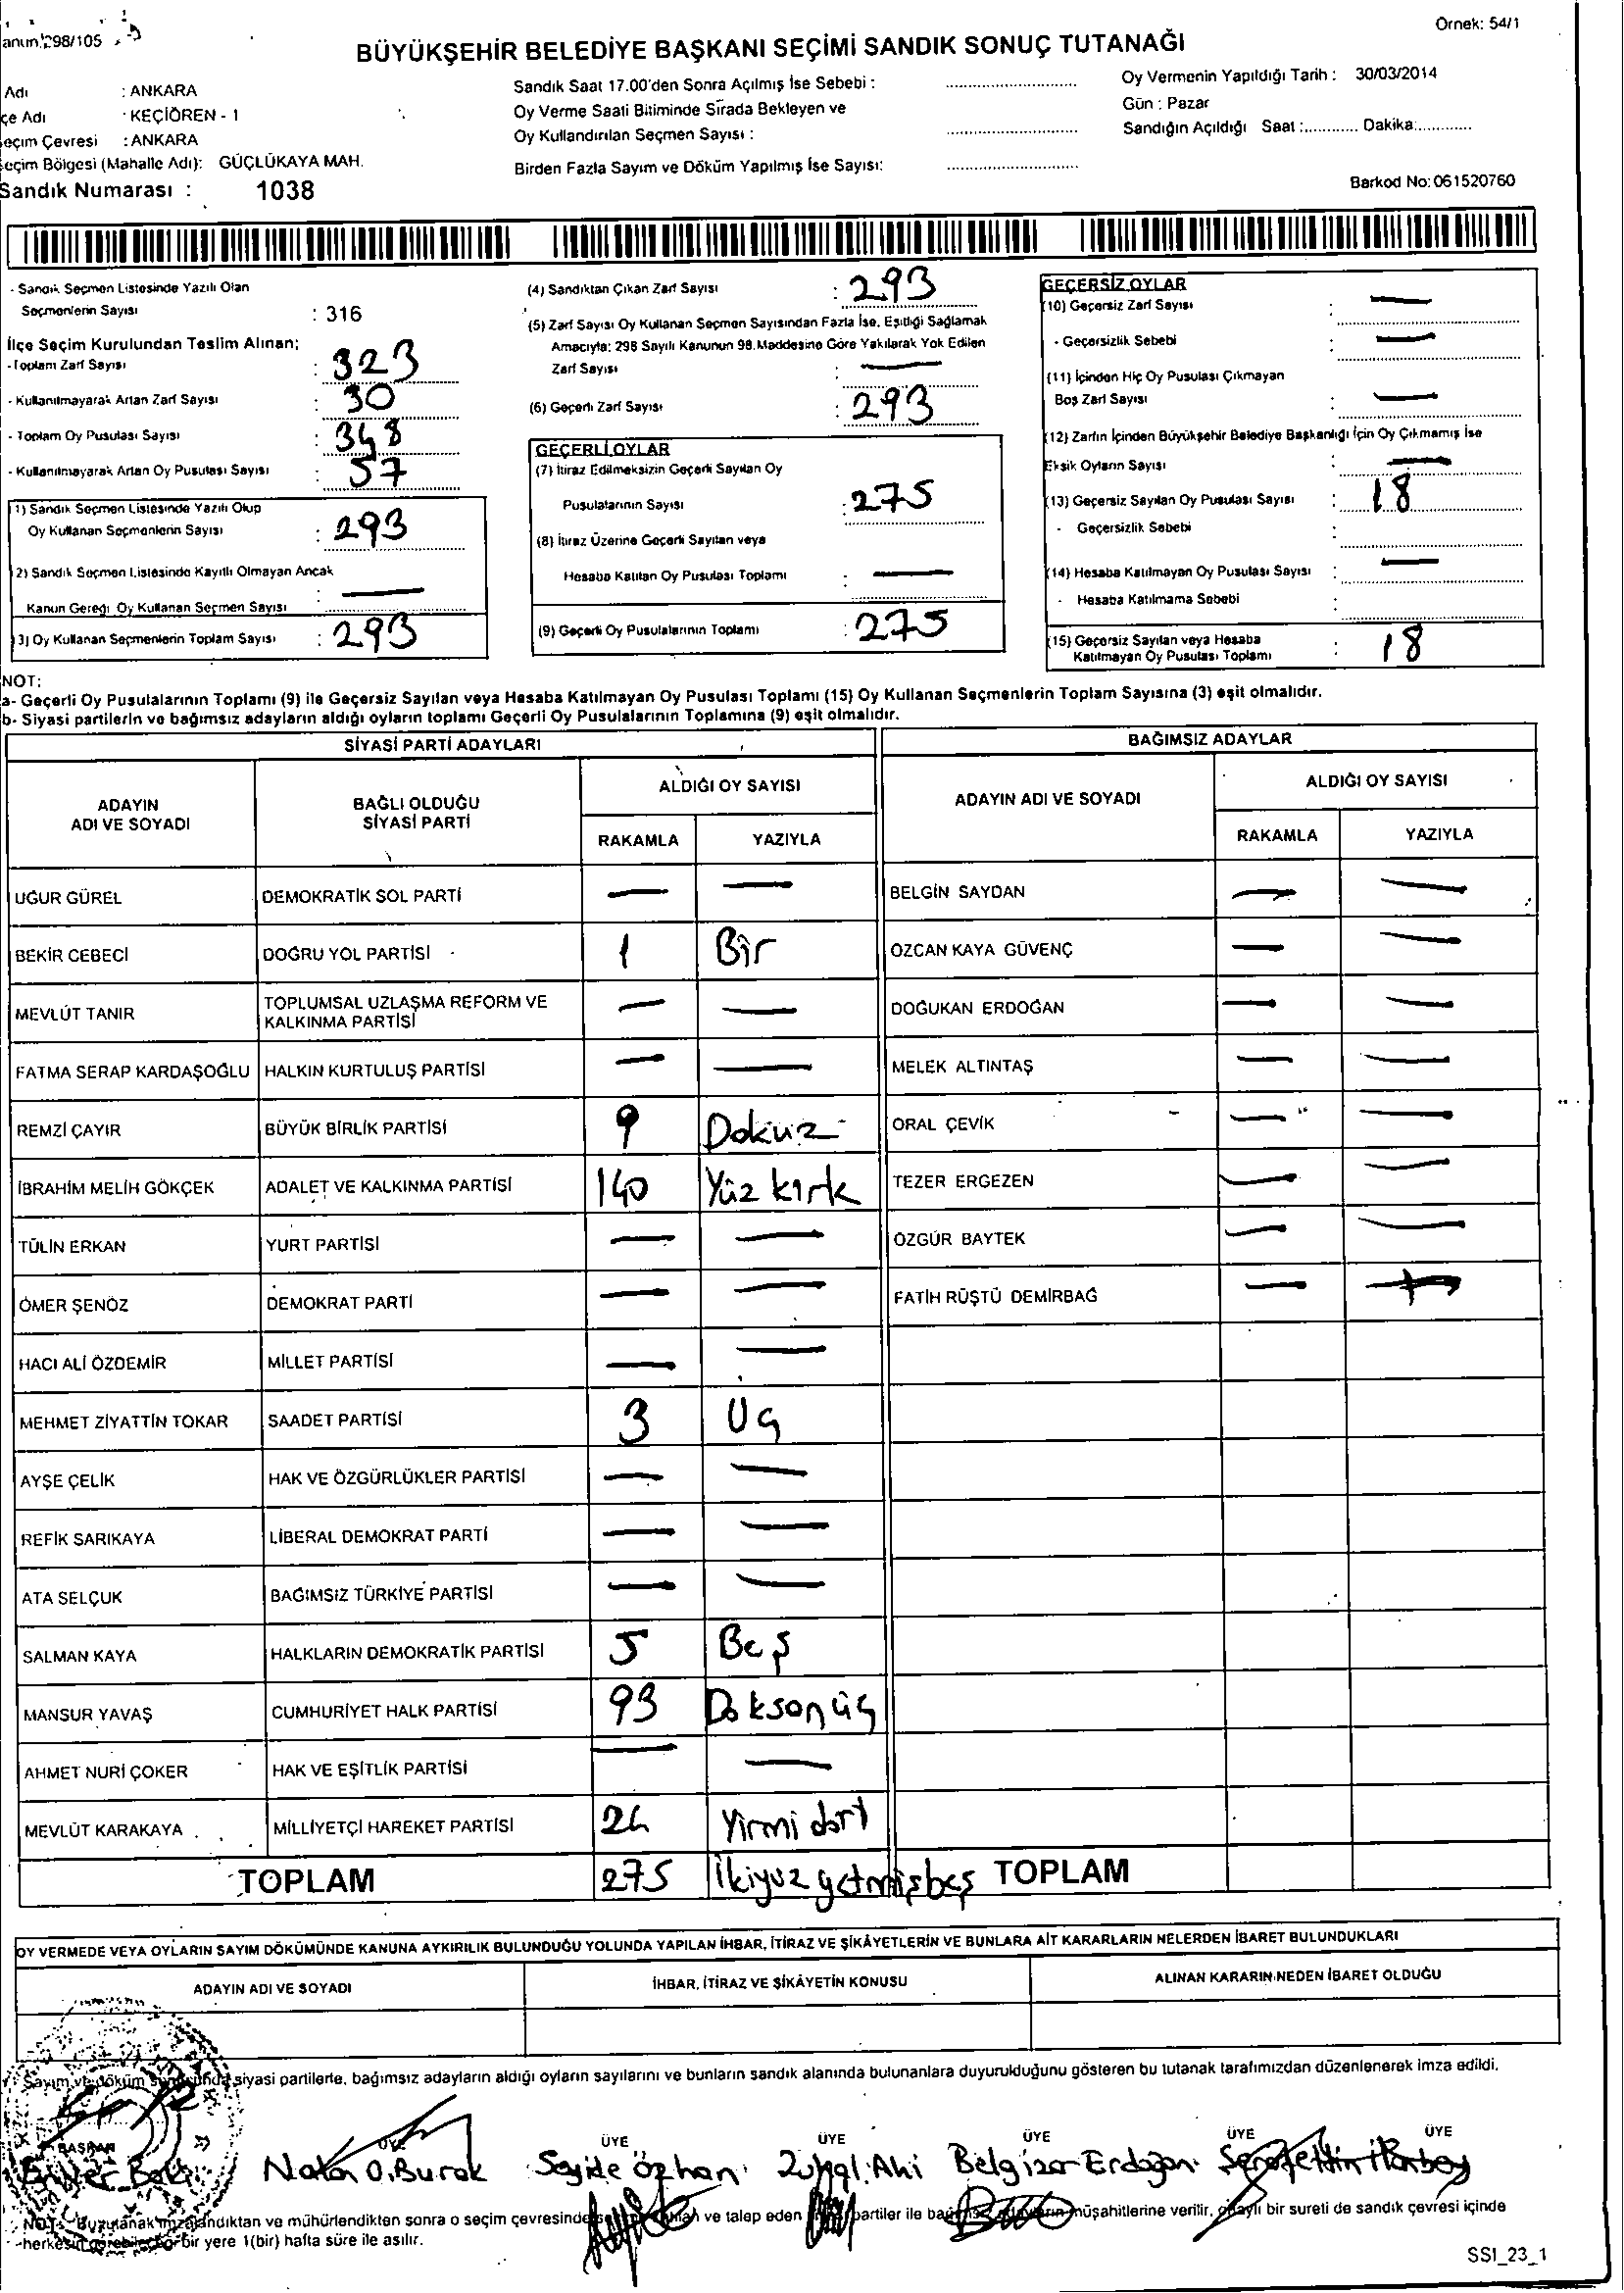 Örnek: 54/1
anun 298/105
BÜYÜKŞEHİR BELEDİYE BAŞKANI SEÇİMİ SANDIK SONUÇ TUTANAĞI
Adı : ANKARA
çe Adı : KEÇİÖREN - 1
eçim Çevresi : ANKARA
eçim Bölgesi (Mahalle Adı): GÜÇLÜKAYA MAH.
Sandık Numarası : 1038
Sandık Saat 17.00'den Sonra Açılmış İse Sebebi :
Oy Verme Saati Bitiminde Sırada Bekleyen ve
Oy Kullandırılan Seçmen Sayısı :
Birden Fazla Sayım ve Döküm Yapılmış İse Sayısı:
Oy Vermenin Yapıldığı Tarih : 30/03/2014
Gün : Pazar
Sandığın Açıldığı Saat :............ Dakika:............
Barkod No: 061520760
- Sandık Seçmen Listesinde Yazılı Olan
Seçmenlerin Sayısı : 316
İlçe Seçim Kurulundan Teslim Alınan;
- Toplam Zarf Sayısı : 323
- Kullanılmayarak Artan Zarf Sayısı : 30
- Toplam Oy Pusulası Sayısı : 348
- Kullanılmayarak Artan Oy Pusulası Sayısı : 57
1) Sandık Seçmen Listesinde Yazılı Olup
Oy Kullanan Seçmenlerin Sayısı : 293
2) Sandık Seçmen Listesinde Kayıtlı Olmayan Ancak
Kanun Gereği Oy Kullanan Seçmen Sayısı : —
3) Oy Kullanan Seçmenlerin Toplam Sayısı : 293
(4) Sandıktan Çıkan Zarf Sayısı : 293
(5) Zarf Sayısı Oy Kullanan Seçmen Sayısından Fazla İse, Eşitliği Sağlamak
Amacıyla: 298 Sayılı Kanunun 98.Maddesine Göre Yakılarak Yok Edilen
Zarf Sayısı : —
(6) Geçerli Zarf Sayısı : 293
GEÇERLİ OYLAR
(7) İtiraz Edilmeksizin Geçerli Sayılan Oy
Pusulalarının Sayısı : 275
(8) İtiraz Üzerine Geçerli Sayılan veya
Hesaba Katılan Oy Pusulası Toplamı : —
(9) Geçerli Oy Pusulalarının Toplamı : 275
GEÇERSİZ OYLAR
(10) Geçersiz Zarf Sayısı : —
- Geçersizlik Sebebi : —
(11) İçinden Hiç Oy Pusulası Çıkmayan
Boş Zarf Sayısı : —
(12) Zarfın İçinden Büyükşehir Belediye Başkanlığı İçin Oy Çıkmamış İse
Eksik Oyların Sayısı : —
(13) Geçersiz Sayılan Oy Pusulası Sayısı : 18
- Geçersizlik Sebebi :
(14) Hesaba Katılmayan Oy Pusulası Sayısı : —
- Hesaba Katılmama Sebebi :
(15) Geçersiz Sayılan veya Hesaba
Katılmayan Oy Pusulası Toplamı : 18
NOT:
a- Geçerli Oy Pusulalarının Toplamı (9) ile Geçersiz Sayılan veya Hesaba Katılmayan Oy Pusulası Toplamı (15) Oy Kullanan Seçmenlerin Toplam Sayısına (3) eşit olmalıdır.
b- Siyasi partilerin ve bağımsız adayların aldığı oyların toplamı Geçerli Oy Pusulalarının Toplamına (9) eşit olmalıdır.
SİYASİ PARTİ ADAYLARI
ADAYIN ADI VE SOYADI BAĞLI OLDUĞU SİYASİ PARTİ ALDIĞI OY SAYISI
RAKAMLA YAZIYLA
UĞUR GÜREL DEMOKRATİK SOL PARTİ — —
BEKİR CEBECİ DOĞRU YOL PARTİSİ 1 Bir
MEVLÜT TANIR TOPLUMSAL UZLAŞMA REFORM VE KALKINMA PARTİSİ — —
FATMA SERAP KARDAŞOĞLU HALKIN KURTULUŞ PARTİSİ — —
REMZİ ÇAYIR BÜYÜK BİRLİK PARTİSİ 9 Dokuz
İBRAHİM MELİH GÖKÇEK ADALET VE KALKINMA PARTİSİ 140 Yüz kırk
TÜLİN ERKAN YURT PARTİSİ — —
ÖMER ŞENÖZ DEMOKRAT PARTİ — —
HACI ALİ ÖZDEMİR MİLLET PARTİSİ — —
MEHMET ZİYATTİN TOKAR SAADET PARTİSİ 3 Uç
AYŞE ÇELİK HAK VE ÖZGÜRLÜKLER PARTİSİ — —
REFİK SARIKAYA LİBERAL DEMOKRAT PARTİ — —
ATA SELÇUK BAĞIMSIZ TÜRKİYE PARTİSİ — —
SALMAN KAYA HALKLARIN DEMOKRATİK PARTİSİ 5 Beş
MANSUR YAVAŞ CUMHURİYET HALK PARTİSİ 93 Doksan üç
AHMET NURİ ÇOKER HAK VE EŞİTLİK PARTİSİ — —
MEVLÜT KARAKAYA MİLLİYETÇİ HAREKET PARTİSİ 24 Yirmi dört
TOPLAM 275 İkiyüz yetmişbeş
BAĞIMSIZ ADAYLAR
ADAYIN ADI VE SOYADI ALDIĞI OY SAYISI
RAKAMLA YAZIYLA
BELGİN SAYDAN — —
ÖZCAN KAYA GÜVENÇ — —
DOĞUKAN ERDOĞAN — —
MELEK ALTINTAŞ — —
ORAL ÇEVİK — —
TEZER ERGEZEN — —
ÖZGÜR BAYTEK — —
FATİH RÜŞTÜ DEMİRBAĞ — —
TOPLAM
OY VERMEDE VEYA OYLARIN SAYIM DÖKÜMÜNDE KANUNA AYKIRILIK BULUNDUĞU YOLUNDA YAPILAN İHBAR, İTİRAZ VE ŞİKÂYETLERİN VE BUNLARA AİT KARARLARIN NELERDEN İBARET BULUNDUKLARI
ADAYIN ADI VE SOYADI İHBAR, İTİRAZ VE ŞİKÂYETİN KONUSU ALINAN KARARIN NEDEN İBARET OLDUĞU
Sayım ve döküm sonucunda siyasi partilerle, bağımsız adayların aldığı oyların sayılarını ve bunların sandık alanında bulunanlara duyurulduğunu gösteren bu tutanak tarafımızdan düzenlenerek imza edildi.
BAŞKAN ÜYE ÜYE ÜYE ÜYE ÜYE ÜYE
O.Burak Seyide Özhan Ahi Belgizar Erdoğan Şerafettin
NOT: Bu tutanak imzalandıktan ve mühürlendikten sonra o seçim çevresinde ve talep eden partiler ile müşahitlerine verilir, onaylı bir sureti de sandık çevresi içinde
herkesin görebileceği bir yere 1(bir) hafta süre ile asılır.
SSI_23_1